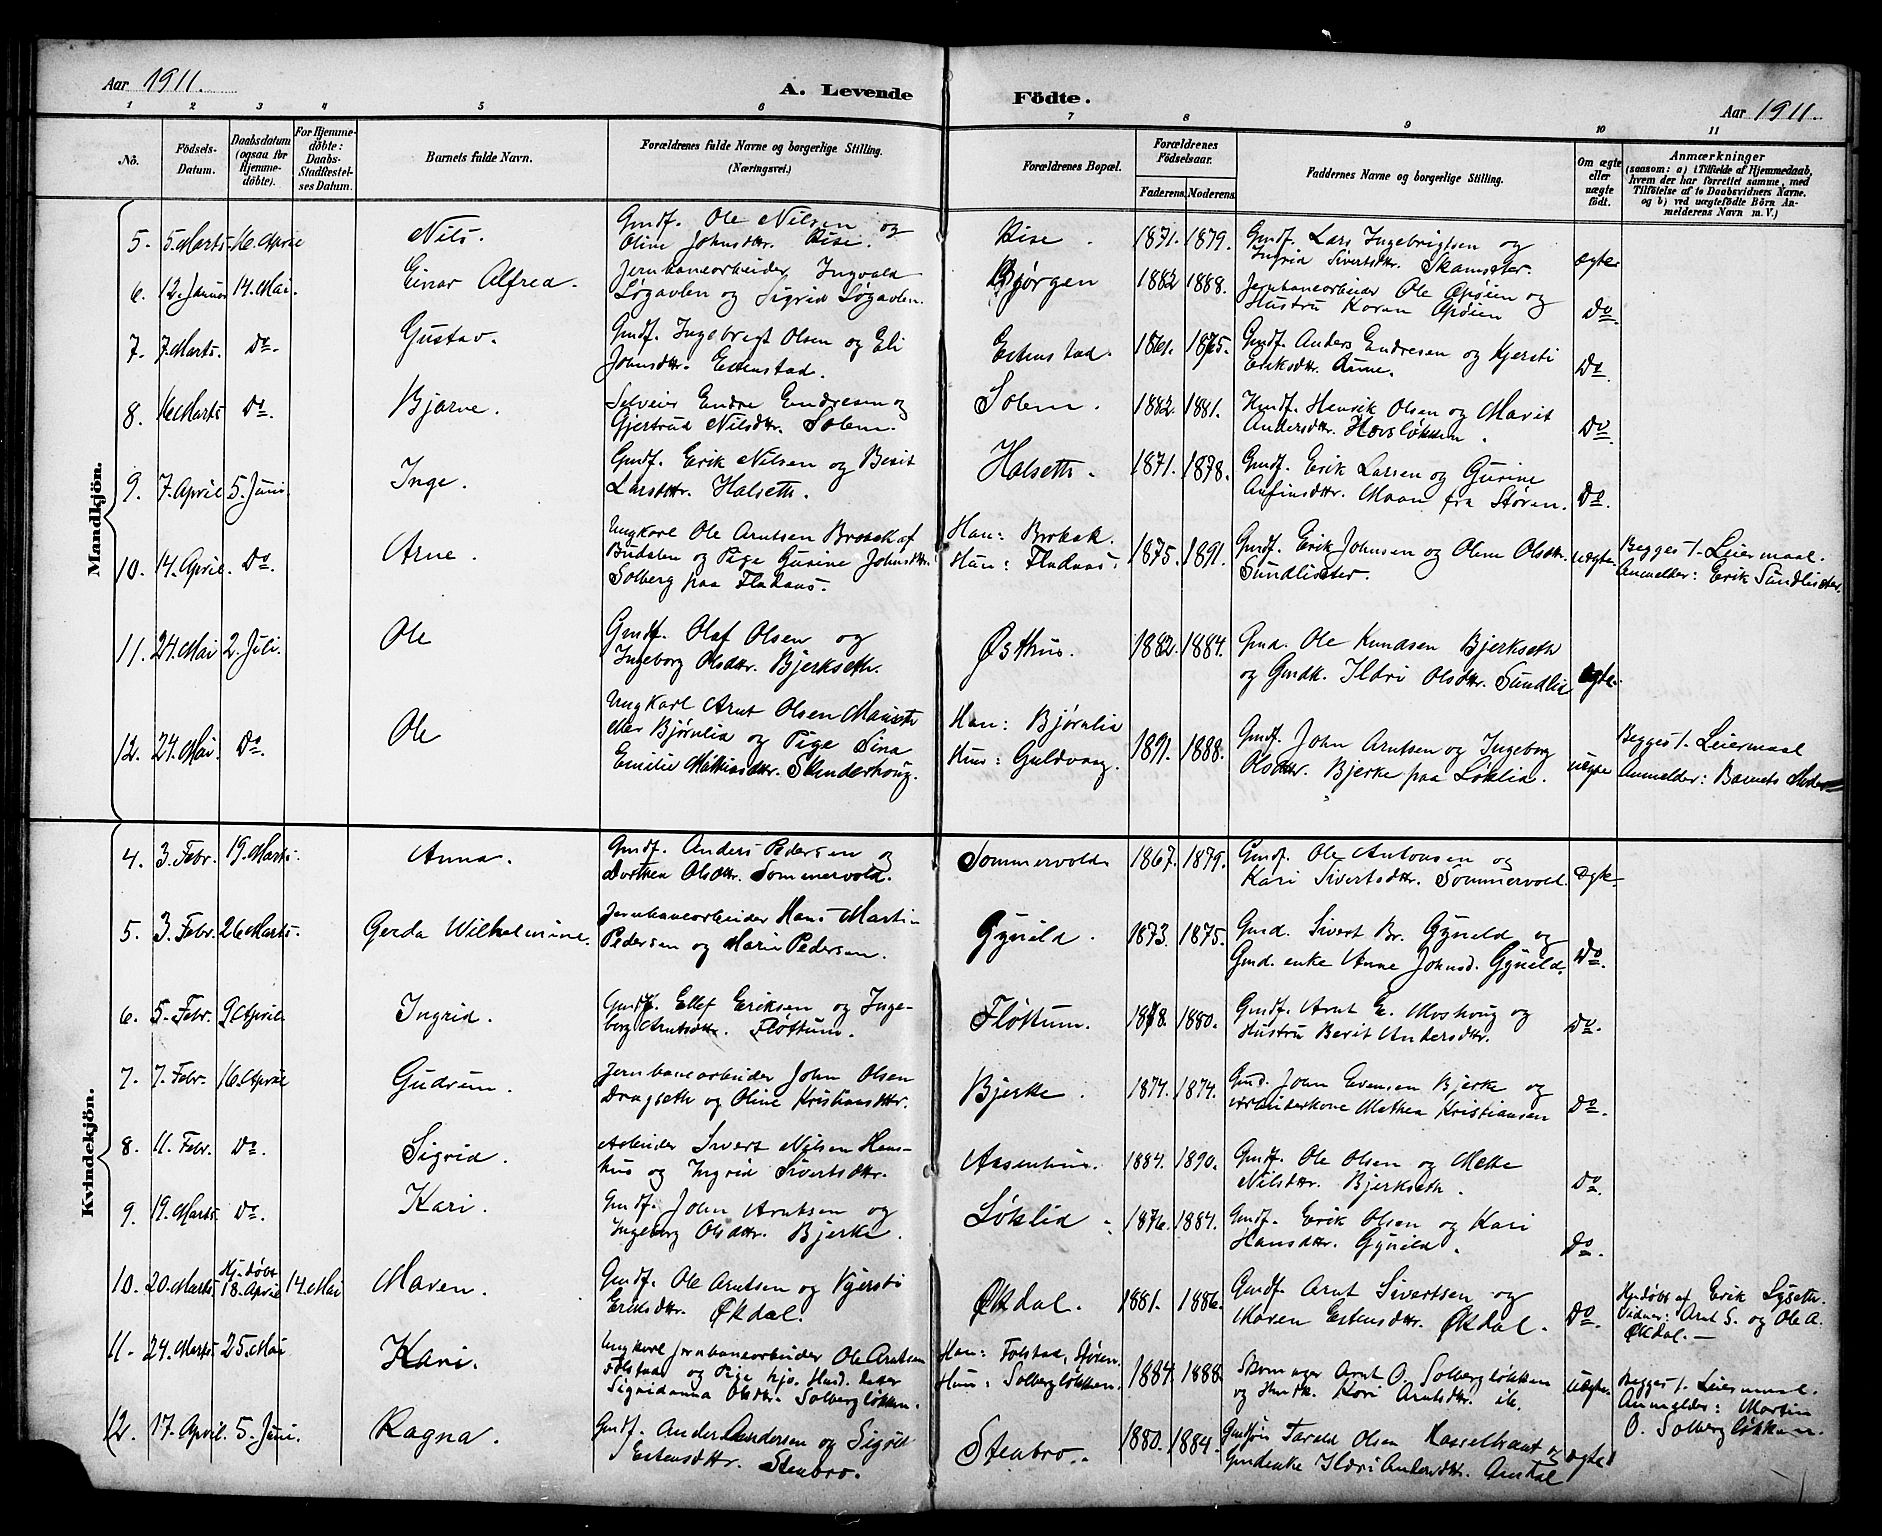 Aar 1911.
A. Levende Födte.
Aar 1911.
1 2 3 4 5 6 7 8 9 10 11
No.
Födsels-Datum.
Daabsdatum (ogsaa for Hjemme-döbte).
For Hjemme-döbte: Daabs-Stadfæstel-ses Datum.
Barnets fulde Navn.
Forældrenes fulde Navne og borgerlige Stilling. (Næringsvei.)
Forældrenes Bopæl.
Forældrenes Födselsaar.
Faderens. Moderens.
Faddernes Navne og borgerlige Stilling.
Om ægte eller uægte födt.
Anmærkninger
(saasom: a) i Tilfælde af Hjemmedaab, hvem der har forrettet samme, med Tilföielse af to Daabsvidners Navne. og b) ved uægtefödte Börn An-melderens Navn m. V.)
Mandkjön.
5. 5. Marts. 16. April Nils. Gmdf. Ole Nilsen og Oline Johnsdtr. Rise. Rise. 1871. 1879. Gmdf. Lars Ingebrigtsen og Ingrid Sivertsdtr. Skamsæter. ægte
6. 12. Januar 14. Mai. Einar Alfred. Jernbanearbeider Ingvald Løgavlen og Sigrid Løgavlen. Bjørgen 1882 1888. Jernbanearbeider Ole Opøien og Hustru Karen Opøien Do.
7. 7. Marts. Do. Gustav. Gmdf. Ingebrigt Olsen og Eli Johnsdtr. Estenstad. Estenstad. 1861. 1865. Gmdf. Anders Endresen og Kjersti Eriksdtr. Aune. Do.
8. 16. Marts Do. Bjarne. Selveier Endre Endresen og Gjertrud Nilsdtr. Solem. Solem. 1882. 1881. Kmdf. Henrik Olsen og Marit Andersdtr. Hovsløkken. Do.
9. 7. April 5. Juni. Inge. Gmdf. Erik Nilsen og Berit Larsdtr. Halseth. Halseth. 1871. 1878. Gmdf. Erik Larsen og Gurine Anfinsdtr. Moan fra Støren. Do.
10. 14. April. Do. Arne. Ungkarl Ole Arntsen Broæk af Budalen og Pige Gurine Johnsdtr. Solberg paa Fladaas. Han: Hun: Fladaas. 1875. 1891. Gmdf. Erik Johnsen og Oline Olsdtr. Sundlisæter. uægte Begges 1. Leiermaal. Anmelder: Erik Sundlisæter.
11. 24. Mai 2. Juli. Ole Gmdf. Olaf Olsen og Ingeborg Olsdtr. Bjerkseth. Østhus. 1882. 1884. Gmd. Ole Knudsen Bjerkseth og Gmdk. Ildri Olsdtr. Sundlia ægte.
12. 24. Mai. Do. Ole Ungkarl Arnt Olsen eller Bjørnlia og Pige Sina Emilie Mathiasdtr. Skinderhoug. Han: Bjørnlia Hun: Guldvaag. 1891. 1888. Gmdf. John Arntsen og Ingeborg Olsdtr. Bjerke paa Løklia. uægte Begges 1. Leiermaal Anmelder: Barnets Moder
Kvindekjön.
4. 3. Febr. 19. Marts. Anna. Gmdf. Anders Pedersen og Dorthea Olsdtr. Sommervold. Sommervold 1867. 1879. Gmdf. Ole Antonsen og Kari Sivertsdtr. Sommervold. ægte
5. 3. Febr. 26 Marts. Gerda Wilhelmine. Jernbanearbeider Hans Martin Pedersen og Marie Pedersen. Gynild. 1873. 1875. Gmd. Sivert Br. Gynild og Gmd. enke Anne Johnsd. Gynild. Do.
6. 5. Febr. 9. April. Ingrid. Gmdf. Ellef Eriksen og Inge-borg Arntsdtr. Fløttum. Fløttum. 1878. 1880. Gmdf. Arnt E. Moshoug og Hustru Berit Andersdtr. Do.
7. 7. Febr. 16. April Gudrun. Jernbanearbeider John Olsen Dragseth og Oline Kristiansdtr. Bjerke. 1874. 1874. Gmd. John Evensen Bjerke og Mathea Kristiansen Do.
8. 11. Febr. Do. Sigrid. Arbeider Sivert Nilsen Hans-hus og Ingrid Sivertsdtr. Aasenhus. 1884. 1890. Gmdf. Ole Olsen og Mette Nilsdtr. Bjerkseth. Do.
9. 19. Marts. Do. Kari. Gmdf. John Arntsen og Ingeborg Olsdtr. Bjerke. Løklia. 1876. 1884. Gmdf. Erik Olsen og Kari Hansdtr. Gynild. Do.
10. 20. Marts. Hj. døbt 18. April 14. Mai Maren. Gmdf. Ole Arntsen og Kjersti Eriksdtr. Økdal. Økdal. 1881. 1886. Gmdf. Arnt Sivertsen og Maren Estensdtr. Økdal. Do. Hj. døbt af Erik Lyseth. Vidner: Arnt S. og Ole A. Økdal.—
11. 24. Marts. 25. Mai Kari. Ungkarl Jernbanearbeider Ole Arntsen Folstad og Pige Sigridanna Olsdtr. Solbergløkken. Han: Folstad, Støren. Hun: Solbergløkken. 1884. 1888. Skomager Arnt O. Solbergløkken og Kari Arntsdtr. ib. uægte Begges 1. Leiermaal. Anmelder: Martin O. Solbergløkken.
12. 17. April 5. Juni. Ragna. Gmdf. Anders Andersen og Sigrid Estensdtr. Stenbro. Stenbro. 1880. 1884. Farald Olsen Hasselbraat og Gmdenke Ildri Andersdtr. ægte